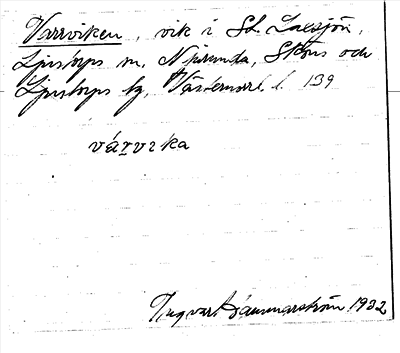 Varrviken, vik i St. Laxsjön,
Ljustorps sn, Njurunda, Sköns och
Ljustorps tg, Västernorrl. l. 139
várvika
Ingvar Hammarström 1932